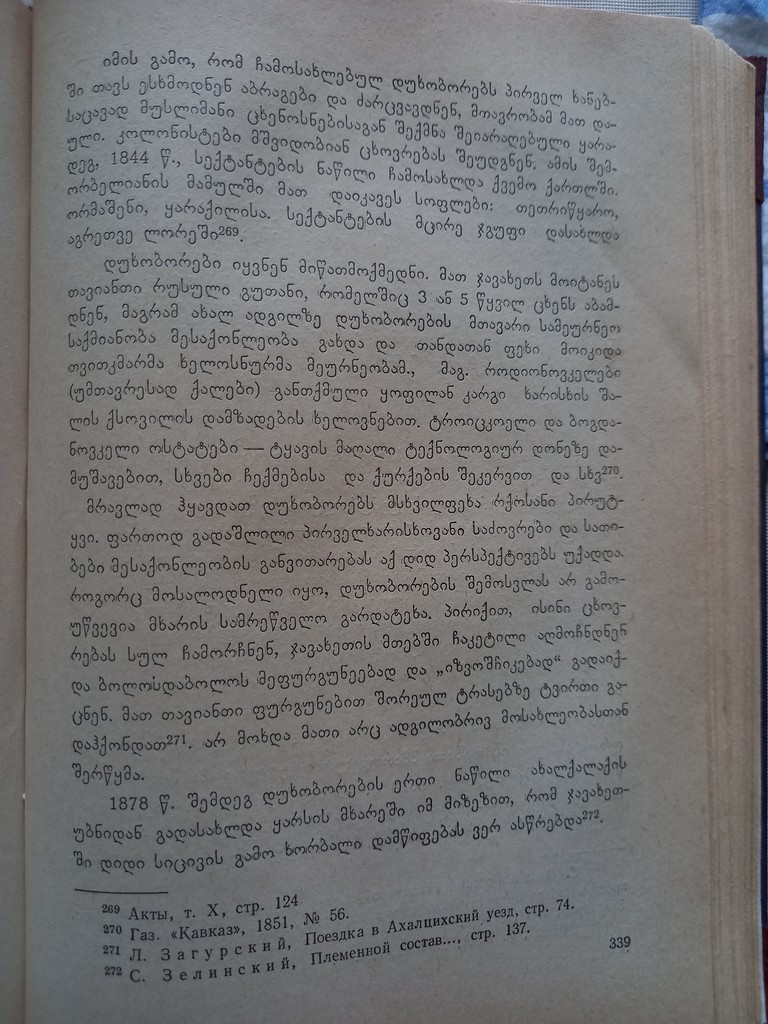 იმის გამო, რომ ჩამოსახლებულ დუხობორებს პირველ ხანებ-
ში თავს ესხმოდნენ აბრაგები და ძარცვავდნენ, მთავრობამ მათ და-
საცავად მუსლიმანი ცხენოსნებისაგან შექმნა შეიარაღებული ყარა-
ული. კოლონისტები მშვიდობიან ცხოვრებას შეუდგნენ. ამის შემ-
დეგ, 1844 წ., სექტანტების ნაწილი ჩამოსახლდა ქვემო ქართლში.
ორბელიანის მამულში მათ დაიკავეს სოფლები: თეთრიწყარო,
ორმაშენი, ყარაქილისა. სექტანტების მცირე ჯგუფი დასახლდა
აგრეთვე ლორეში²⁶⁹.
დუხობორები იყვნენ მიწათმოქმედნი. მათ ჯავახეთს მოიტანეს
თავიანთი რუსული გუთანი, რომელშიც 3 ან 5 წყვილ ცხენს აბამ-
დნენ, მაგრამ ახალ ადგილზე დუხობორების მთავარი სამეურნეო
საქმიანობა მესაქონლეობა გახდა და თანდათან ფეხი მოიკიდა
თვითკმარმა ხელოსნურმა მეურნეობამ., მაგ. როდიონოვკელები
(უმთავრესად ქალები) განთქმული ყოფილან კარგი ხარისხის შა-
ლის ქსოვილის დამზადების ხელოვნებით. ტროიცკოელი და ბოგდა-
ნოვკელი ოსტატები — ტყავის მაღალი ტექნოლოგიურ დონეზე და-
მუშავებით, სხვები ჩექმებისა და ქურქების შეკერვით და სხვ²⁷⁰.
მრავლად ჰყავდათ დუხობორებს მსხვილფეხა რქოსანი პირუტ-
ყვი. ფართოდ გადაშლილი პირველხარისხოვანი საძოვრები და სათი-
ბები მესაქონლეობის განვითარებას აქ დიდ პერსპექტივებს უქადდა.
როგორც მოსალოდნელი იყო, დუხობორების შემოსვლას არ გამო-
უწვევია მხარის სამრეწველო გარდატეხა. პირიქით, ისინი ცხოვ-
რებას სულ ჩამორჩნენ, ჯავახეთის მთებში ჩაკეტილი აღმოჩნდნენ
და ბოლოსდაბოლოს მეფურგუნეებად და „იზვოშჩიკებად“ გადაიქ-
ცნენ. მათ თავიანთი ფურგუნებით შორეულ ტრასებზე ტვირთი გა-
დაჰქონდათ²⁷¹. არ მოხდა მათი არც ადგილობრივ მოსახლეობასთან
შერწყმა.
1878 წ. შემდეგ დუხობორების ერთი ნაწილი ახალქალაქის
უბნიდან გადასახლდა ყარსის მხარეში იმ მიზეზით, რომ ჯავახეთ-
ში დიდი სიცივის გამო ხორბალი დამწიფებას ვერ ასწრებდა²⁷².
²⁶⁹ Акты, т. X, стр. 124
²⁷⁰ Газ. «Кавказ», 1851, № 56.
²⁷¹ Л. Загурский, Поездка в Ахалцихский уезд, стр. 74.
²⁷² С. Зелинский, Племенной состав..., стр. 137.
339